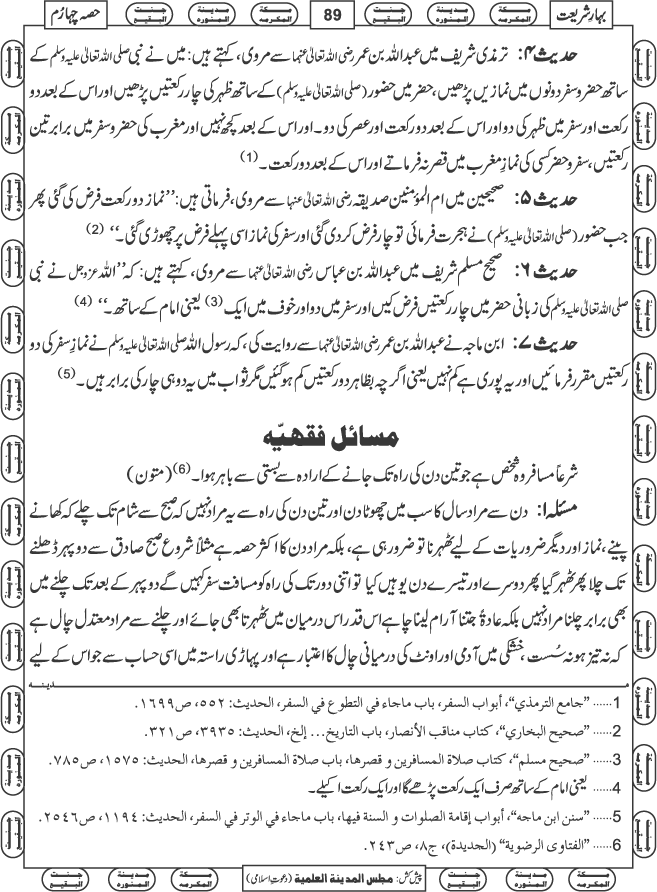 بہارِ شریعت
جنت البقیع
مدینۃ المنورہ
مکۃ المکرمہ
89
مکۃ المکرمہ
مدینۃ المنورہ
جنت البقیع
حصہ چہارم
حدیث ۴: ترمذی شریف میں عبداللہ بن عمر رضی اللہ تعالیٰ عنہما سے مروی، کہتے ہیں: میں نے نبی صلی اللہ تعالیٰ علیہ وسلم کے
ساتھ حضر و سفر دونوں میں نمازیں پڑھیں، حضر میں حضور (صلی اللہ تعالیٰ علیہ وسلم) کے ساتھ ظہر کی چار رکعتیں پڑھیں اور اس کے بعد دو
رکعت اور سفر میں ظہر کی دو اور اس کے بعد دو رکعت اور عصر کی دو۔ اور اس کے بعد کچھ نہیں اور مغرب کی حضر و سفر میں برابر تین
رکعتیں، سفر و حضر کسی کی نمازِ مغرب میں قصر نہ فرماتے اور اس کے بعد دو رکعت۔ (1)
حدیث ۵: صحیحین میں ام المؤمنین صدیقہ رضی اللہ تعالیٰ عنہا سے مروی، فرماتی ہیں: ’’نماز دو رکعت فرض کی گئی پھر
جب حضور (صلی اللہ تعالیٰ علیہ وسلم) نے ہجرت فرمائی تو چار فرض کر دی گئی اور سفر کی نماز اسی پہلے فرض پر چھوڑی گئی۔‘‘ (2)
حدیث ۶: صحیح مسلم شریف میں عبداللہ بن عباس رضی اللہ تعالیٰ عنہما سے مروی، کہتے ہیں: کہ ’’اللہ عزوجل نے نبی
صلی اللہ تعالیٰ علیہ وسلم کی زبانی حضر میں چار رکعتیں فرض کیں اور سفر میں دو اور خوف میں ایک (3) یعنی امام کے ساتھ۔‘‘ (4)
حدیث ۷: ابن ماجہ نے عبداللہ بن عمر رضی اللہ تعالیٰ عنہما سے روایت کی، کہ رسول اللہ صلی اللہ تعالیٰ علیہ وسلم نے نمازِ سفر کی دو
رکعتیں مقرر فرمائیں اور یہ پوری ہے کم نہیں یعنی اگرچہ بظاہر دو رکعتیں کم ہوگئیں مگر ثواب میں یہ دو ہی چار کی برابر ہیں۔ (5)
مسائل فقہیّہ
شرعاً مسافر وہ شخص ہے جو تین دن کی راہ تک جانے کے ارادہ سے بستی سے باہر ہوا۔ (6) (متون)
مسئلہ ۱: دن سے مراد سال کا سب میں چھوٹا دن اور تین دن کی راہ سے یہ مراد نہیں کہ صبح سے شام تک چلے کہ کھانے
پینے، نماز اور دیگر ضروریات کے لیے ٹھہرنا تو ضرور ہی ہے، بلکہ مراد دن کا اکثر حصہ ہے مثلاً شروع صبح صادق سے دوپہر ڈھلنے
تک چلا پھر ٹھہر گیا پھر دوسرے اور تیسرے دن یوہیں کیا تو اتنی دور تک کی راہ کو مسافت سفر کہیں گے دوپہر کے بعد تک چلنے میں
بھی برابر چلنا مراد نہیں بلکہ عادۃً جتنا آرام لینا چاہیے اس قدر اس درمیان میں ٹھہرتا بھی جائے اور چلنے سے مراد معتدل چال ہے
کہ نہ تیز ہو نہ سُست، خشکی میں آدمی اور اونٹ کی درمیانی چال کا اعتبار ہے اور پہاڑی راستہ میں اسی حساب سے جو اس کے لیے
1...... ”جامع الترمذي“، أبواب السفر، باب ماجاء في التطوع في السفر، الحديث: ٥٥٢، ص١٦٩٩.
2...... ”صحيح البخاري“، كتاب مناقب الأنصار، باب التاريخ... إلخ، الحديث: ٣٩٣٥، ص٣٢١.
3...... ”صحيح مسلم“، كتاب صلاة المسافرين و قصرها، باب صلاة المسافرين و قصرها، الحديث: ١٥٧٥، ص٧٨٥.
4...... یعنی امام کے ساتھ صرف ایک رکعت پڑھے گا اور ایک رکعت اکیلے۔
5...... ”سنن ابن ماجه“، أبواب إقامة الصلوات و السنة فيها، باب ماجاء في الوتر في السفر، الحديث: ١١٩٤، ص٢٥٤٦.
6...... ”الفتاوى الرضوية“ (الجديدة)، ج٨، ص٢٤٣.
پیش کش: مجلس المدينة العلمية (دعوتِ اسلامی)